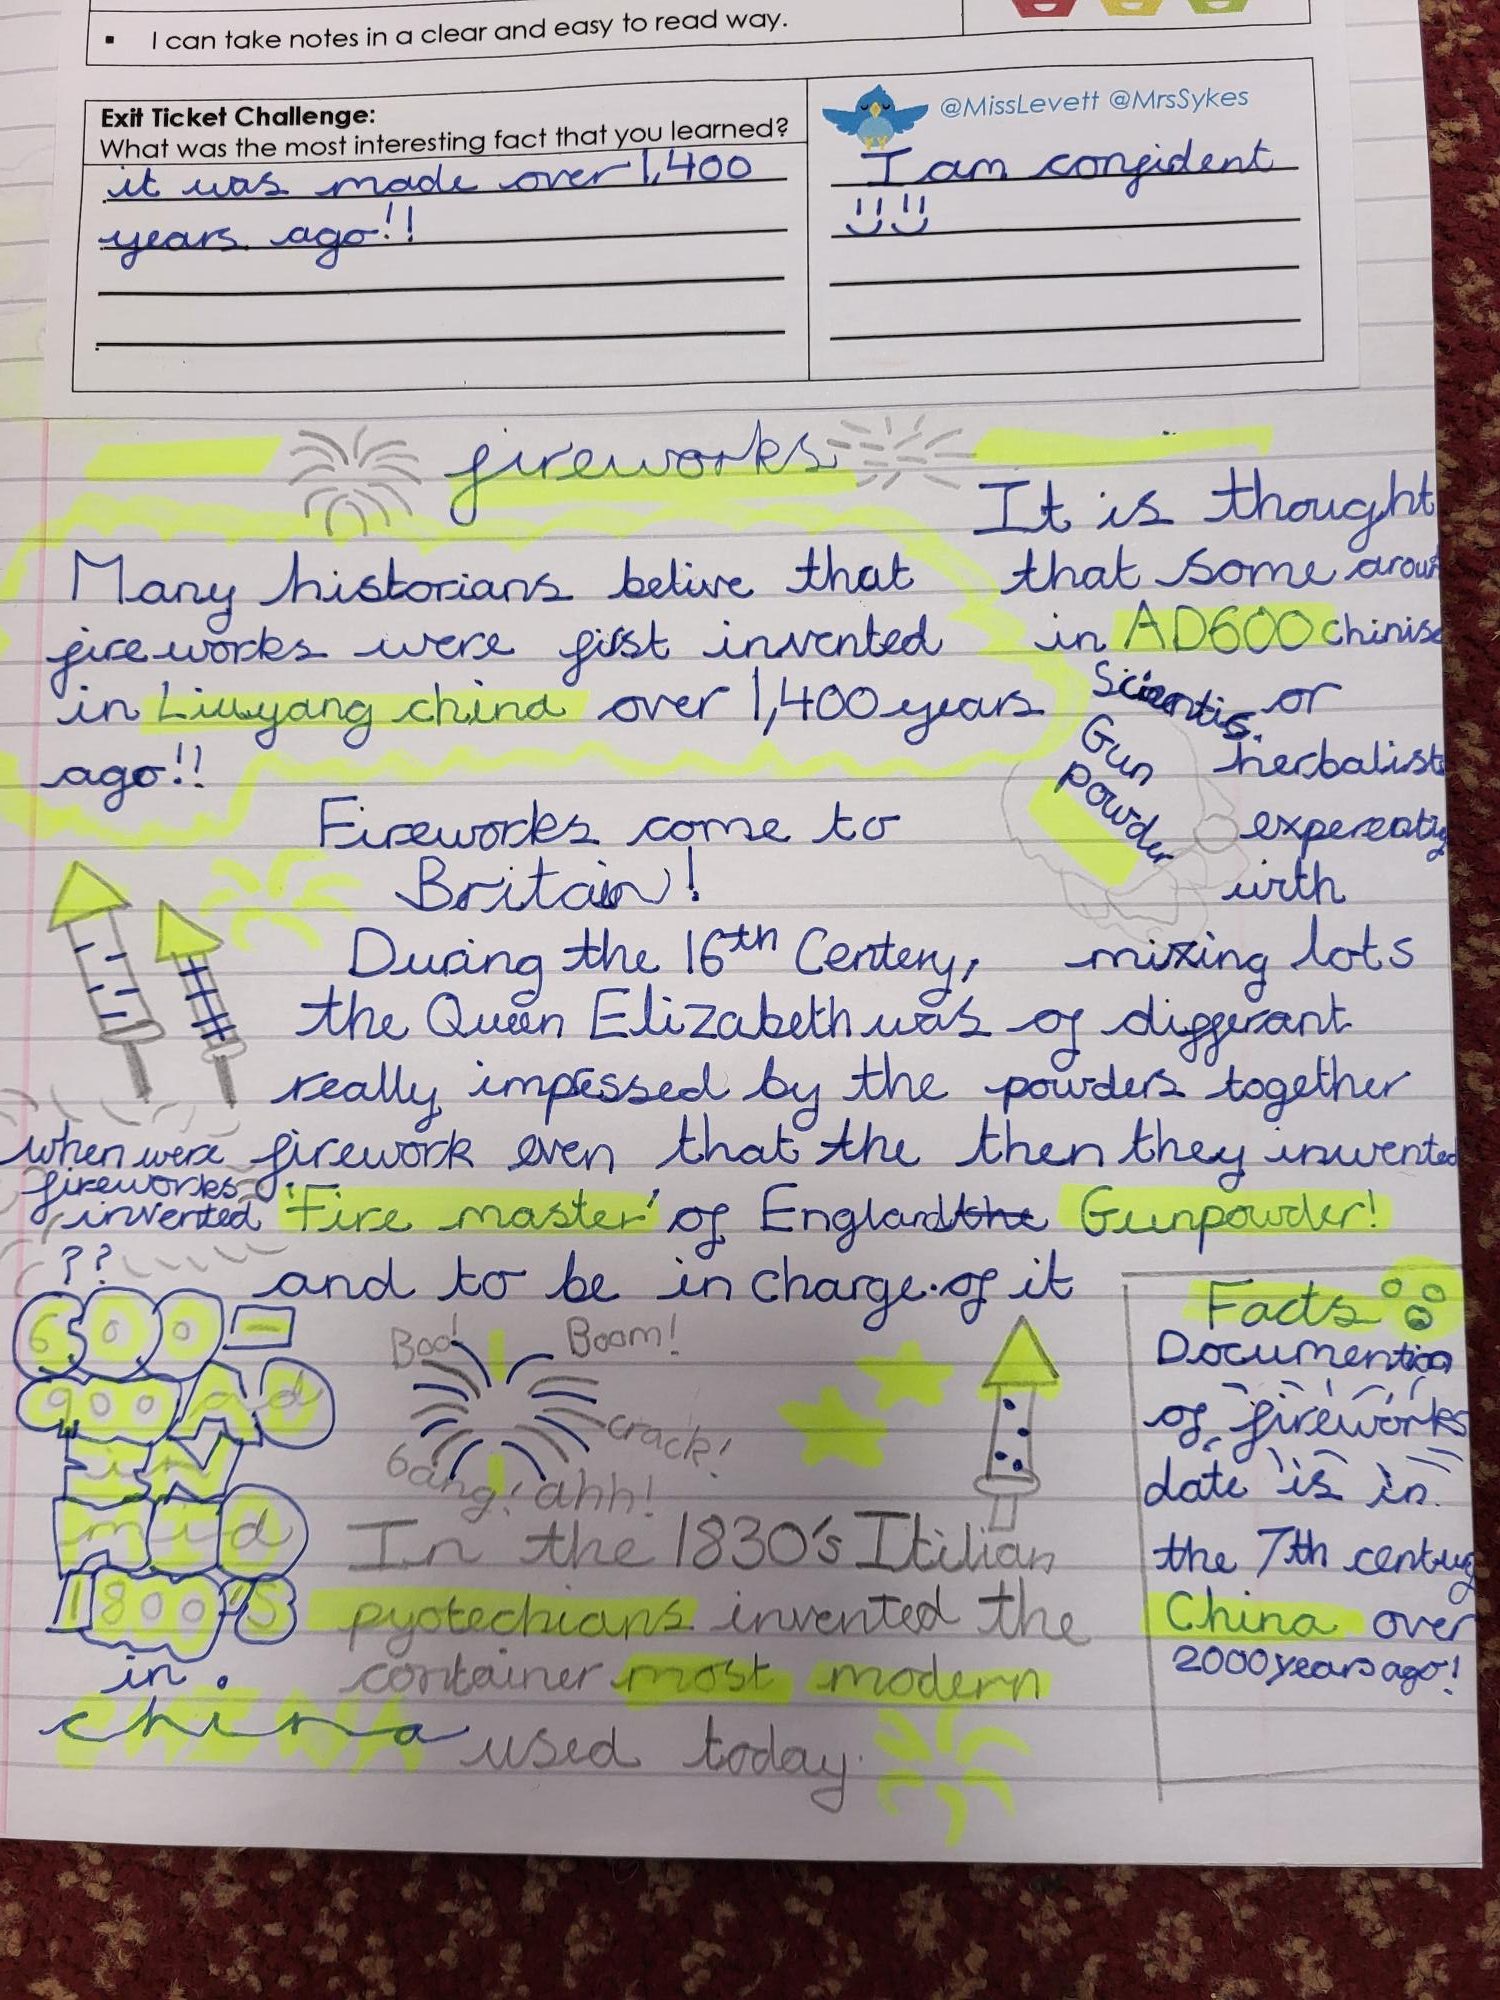 I can take notes in a clear and easy to read way.
Exit Ticket Challenge:
What was the most interesting fact that you learned?
it was made over 1,400
years ago!!
@MissLevett @MrsSykes
I am confident
fireworks
Many historians belive that
fireworks were first invented
in Liuyang china over 1,400 years
ago!!
It is thought
that some aroun
in AD600 chinise
Scientis. or
herbalists
with
mixing lots
of differant
powders together
then they inwented
Gunpowder!
Gun
powder
Fireworks come to
Britain!
During the 16th Centery,
the Queen Elizabeth was
really impressed by the
firework even that the
'Fire master' of England the
and to be in charge of it
when were
fireworks
invented
??
600-
900 ad
in
mid
1800's
in.
china
Boo!
Boom!
crack!
bang! ahh!
In the 1830's Itilian
pyotechians invented the
container most modern
used today.
Facts
of fireworks
date is in
the 7th
China over
2000 years ago!